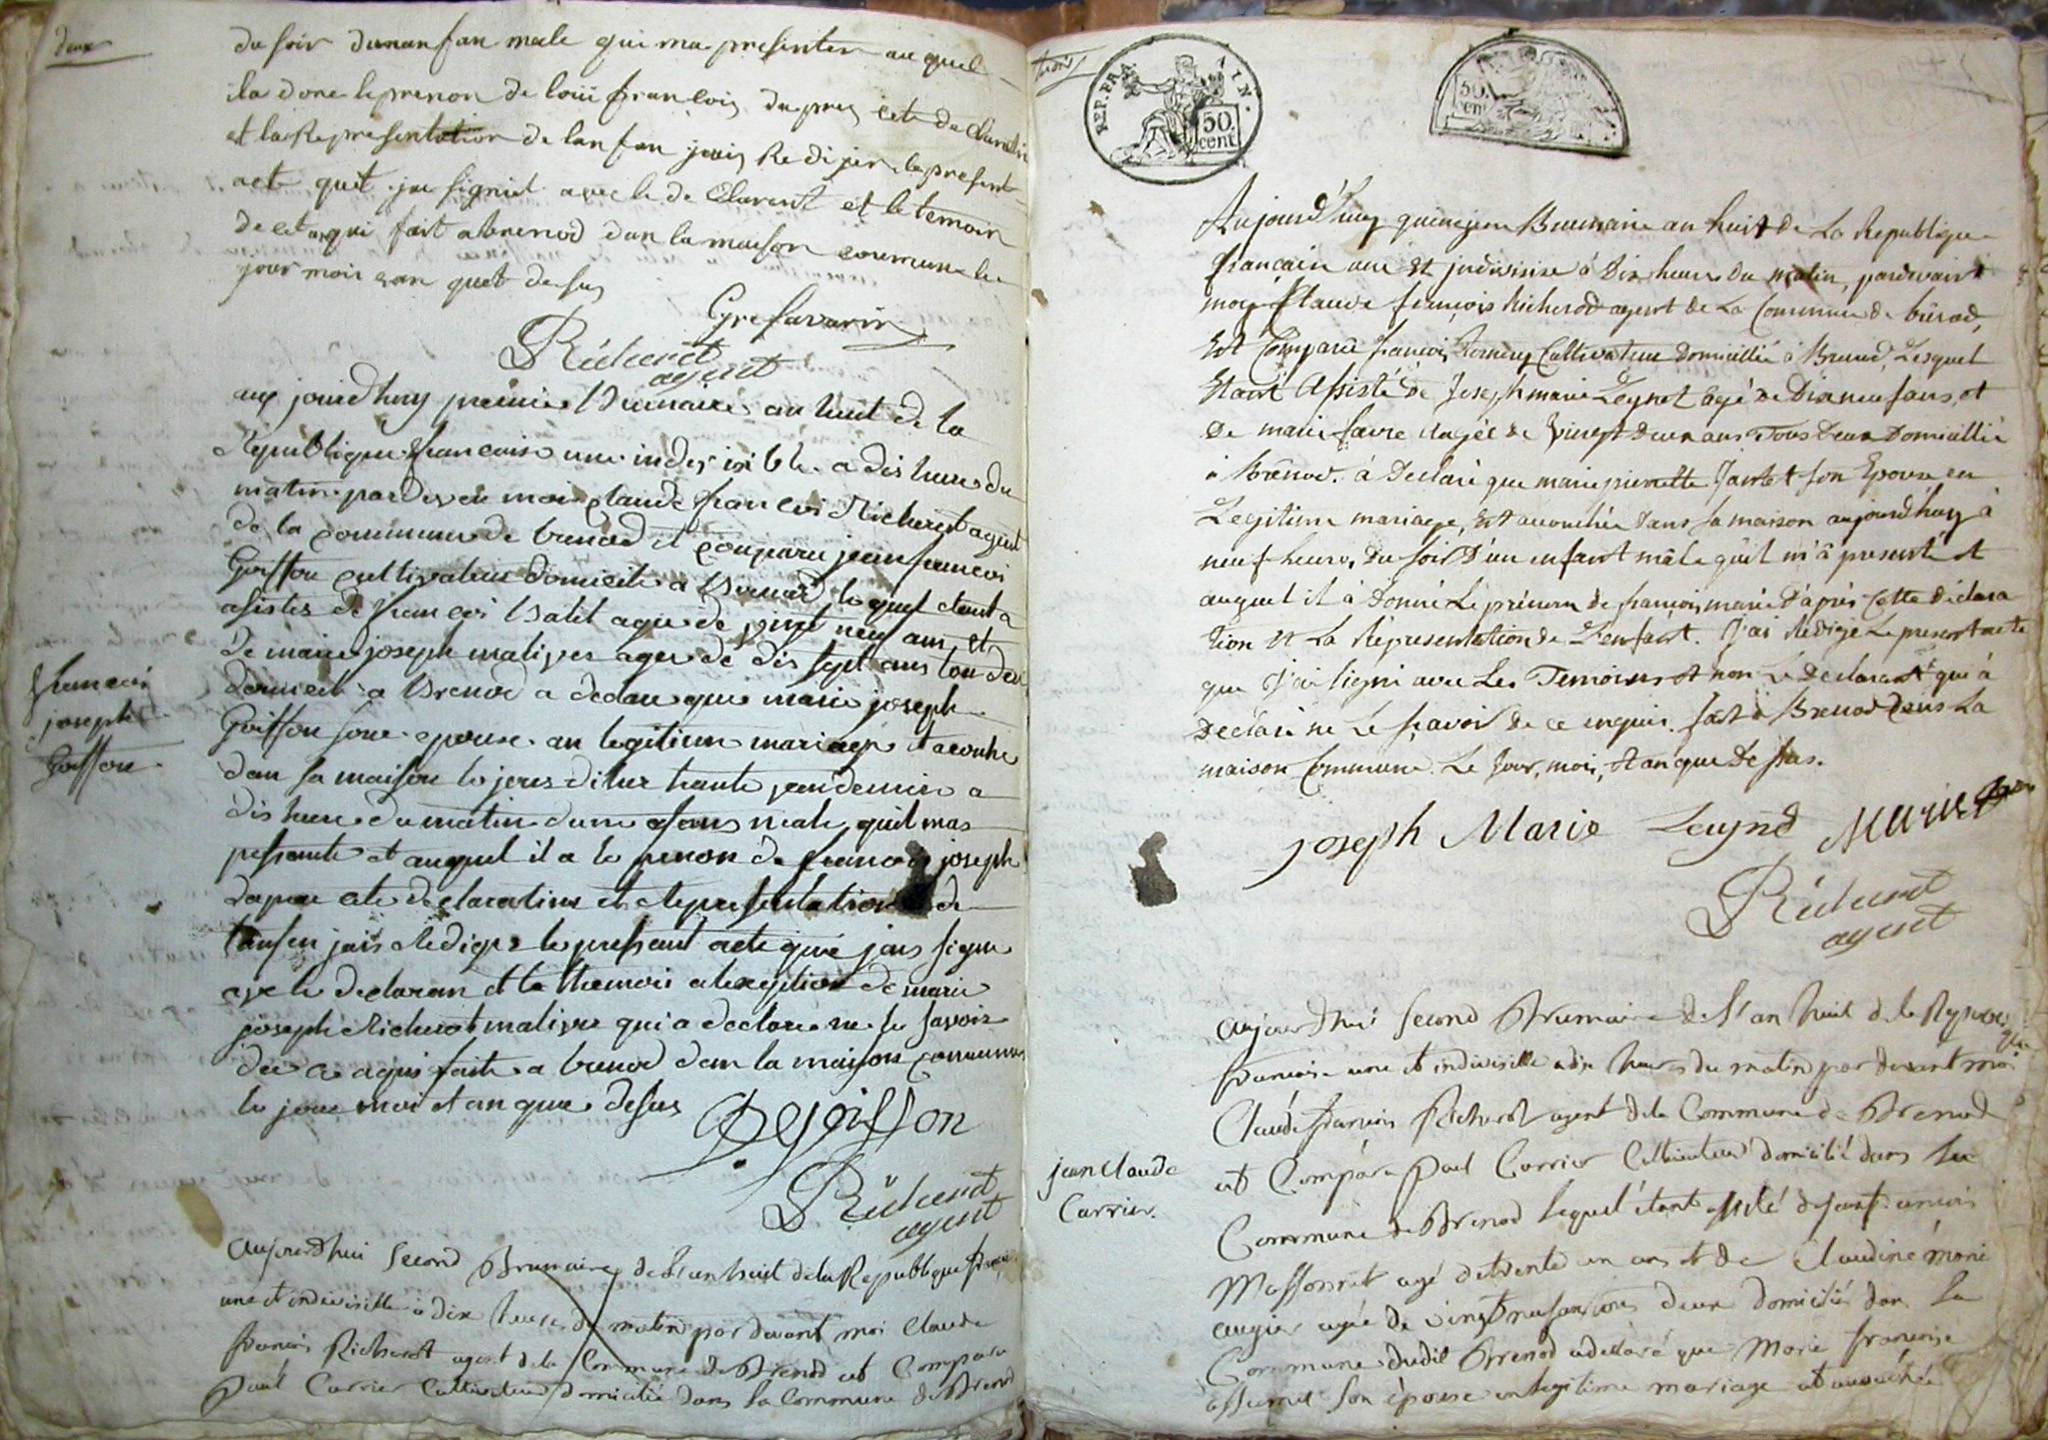 deux
du soir dunanfan male qui ma presenter au quel
ila done leprenon de loüi françois dapres cete declaration
et la Representation de lanfan jaiy Redijer lepresent
acte quit jai signiet avec le declarent et le temoin
de cet anqui fait abrenod dan la maison commune le
jour mois e an quet desus
Cyre favarin
Richerot
agent
aux jourdhuy premier Brumaire an huit de la
Republique francaise une indivisible a dis heure du
matin pardeven moi claude francois Richerot agent
de la commune de brenod et conparu jean francois
Goiffon cultivateur domicile a Brenod le quel etant a
asistes de francois Balet agee de vint neuf ans et
de marie joseph malivers ager de dis sept ans tou deu
domicile a Brenod a declare que marie joseph
Goiffon sone epouse an legitime mariage et acouche
dan sa maison le jours dhier trante vandemier a
dis heure du matin dune afans male quil mas
pessante et auquel il a le prenon de francois joseph
dapres cete declaration et Representation de
lanfen jais Redige le pressant acte que jais signe
avec le declaran et le themoin alexeption de marie
joseph Richerot malivers qui a declare ne le savoir
de ce aqis fait a brenod dan la maison commune
le jour moi et an que desus
Goiffon
Richerot
agent
francois
joseph
Goiffon
aujourdhui second Brumaire de l'an huit de la Republique france
une et indivisible à dix heures du matin par devant moi Claude
francois Richerot agent de la Commune de Brenod est Comparu
Paul Carrier Cultivateur domicilié dans la Commune de Brenod
trois
REP. FRA.
50.
cent.
50.
cent.
Aujourd'huy quinzieme Brumaire an huit de La Republique
francaise une et indivisise à Dix heures Du matin, pardevant
moy Claude françois Richerod agent de La Commune de brenod,
Est Comparu francois Cultivateur domicillié à Brenod, Lesquel
Etant Assisté de Joseph marie Leynet agé de Dixneuf ans, et
De marie favre Agée de Vingt deux ans Tous Deux Domicillié
à Brenod. à Declaré que marie pierrette Jantet son Epouse en
Legitime mariage, Est accouchée Dans sa maison aujourd'huy à
neuf heures Du soir D'un enfant mâle qu'il m'à presenté et
auquel il à Donné Le prénom de francois marie D'après Cette Déclara
tion et La Répresentation de L'enfant. J'ai Rédigé Le present acte
que J'ai signé avec Les Temoins et non Le Declarant qui à
Declaré ne Le sçavoir de ce enquis. fait à Brenod Dans La
maison Commune Le Jour, mois, et an que De ssus.
joseph Marie Leynd Marie
Richerot
agent
jean Claude
Carrier.
aujourdhui second Brumaire de l'an huit de la Republi
que
francaise une et indivisible a dix heures du matin par devant moi
Claude francois Richerot agent de la Commune de Brenod
est Comparu Paul Carrier Cultivateur domicilié dans la
Commune de Brenod lequel étant assisté de jean francois
Massonnet agé de trente un ans et de Claudine marie
augier agée de vingt neuf ans tous deux domiciliés dans la
Commune dudit Brenod a déclaré que Marie francoise
assumet son épouse en legitime mariage est accouchée